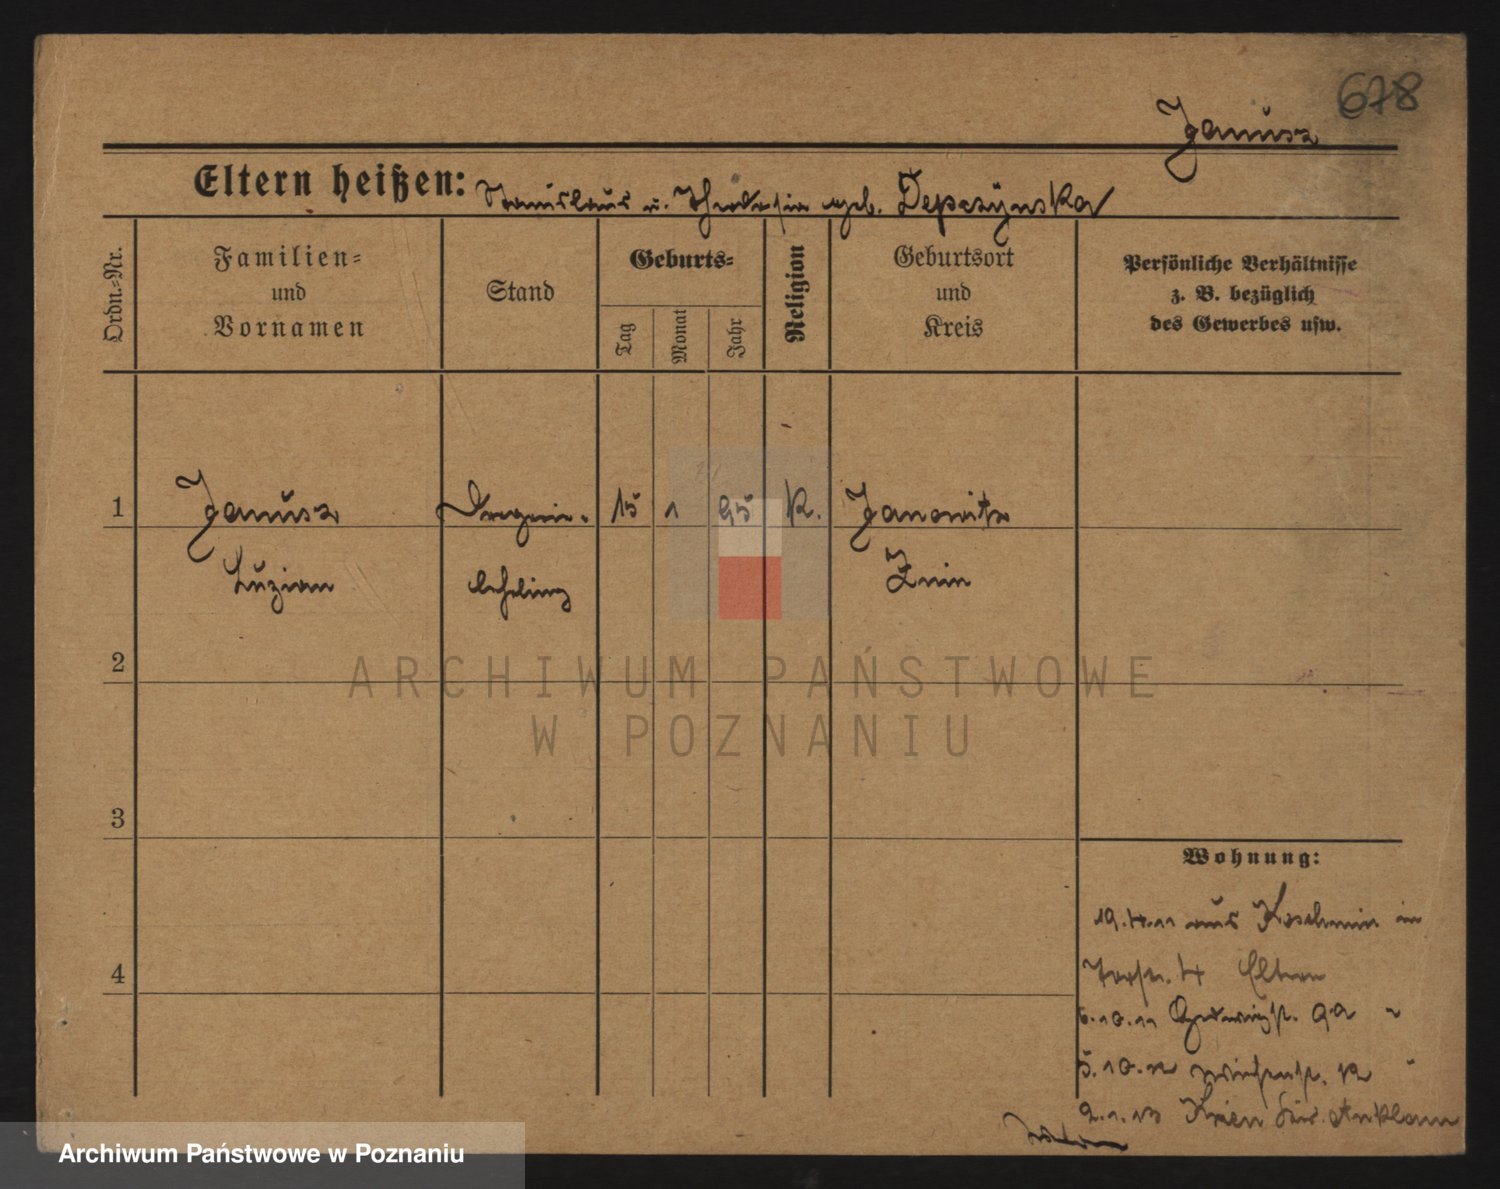 678
Janusz
Eltern heißen: Stanislaus u. Theodosia geb. Depczynska
Ordn.-Nr.
Familien-
und
Vornamen
Stand
Geburts-
Tag
Monat
Jahr
Religion
Geburtsort
und
Kreis
Persönliche Verhältnisse
z. B. bezüglich
des Gewerbes usw.
1
Janusz
Luzian
lehrling
15
1
95
K.
Janowitz
Znin
2
3
4
ARCHIWUM PAŃSTWOWE
W POZNANIU
Wohnung:
19.4.11 aus Koschmin in
4 Eltern
5.10.11 9a "
5.10.12 12 "
2.1.13 Krien Anklam
Archiwum Państwowe w Poznaniu